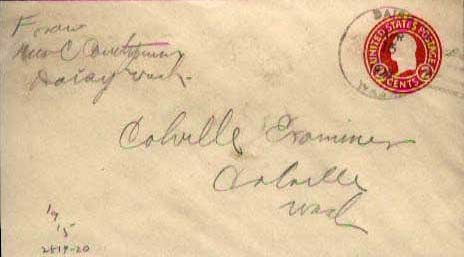 From
C
Daisy Wash.
Colville Examiner
Colville
Wash
UNITED STATES POSTAGE
2 CENTS 2
19
15
2519-20